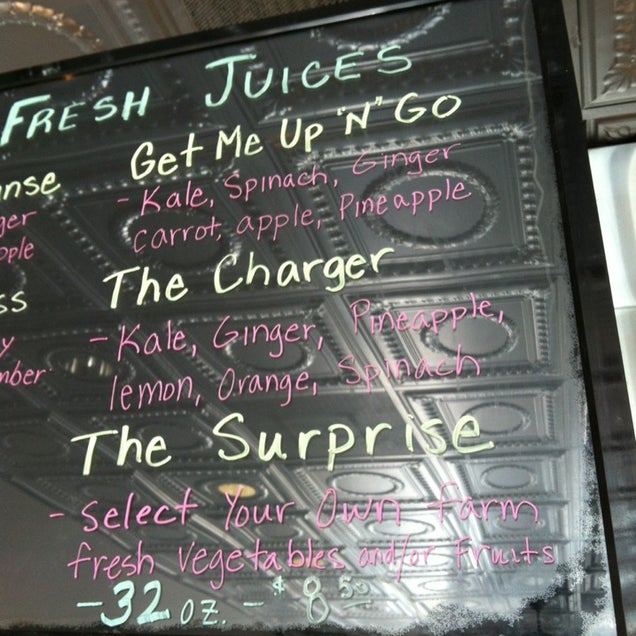 FRESH JUICES
nse
ger
pple
ss
y
mber
Get Me Up "N" Go
- Kale, Spinach, Ginger
Carrot, apple, Pineapple
The Charger
- Kale, Ginger, Pineapple,
lemon, Orange, Spinach
The Surprise
- Select Your Own farm
fresh vegetables and/or Fruits
- 32 oz. - $8.50